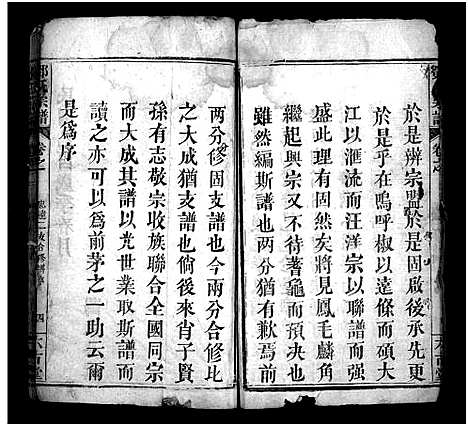 於是辨宗盟於是固啟後承先更
於是乎在嗚呼椒以遠條而碩大
江以滙流而汪洋宗以聯譜而強
盛此理有固然矣將見鳳毛麟角
繼起興宗又不待蓍龜而預决也
雖然編斯譜也两分猶有歉焉倘
两分修固支譜也今兩分合修比
之大成猶支譜也倘後來肖子賢
孫有志敬宗收族聯合全國同宗
而大成其譜以光世業取斯譜而
讀之亦可以為前茅之一助云爾
是為序
宗譜
卷之
四
六